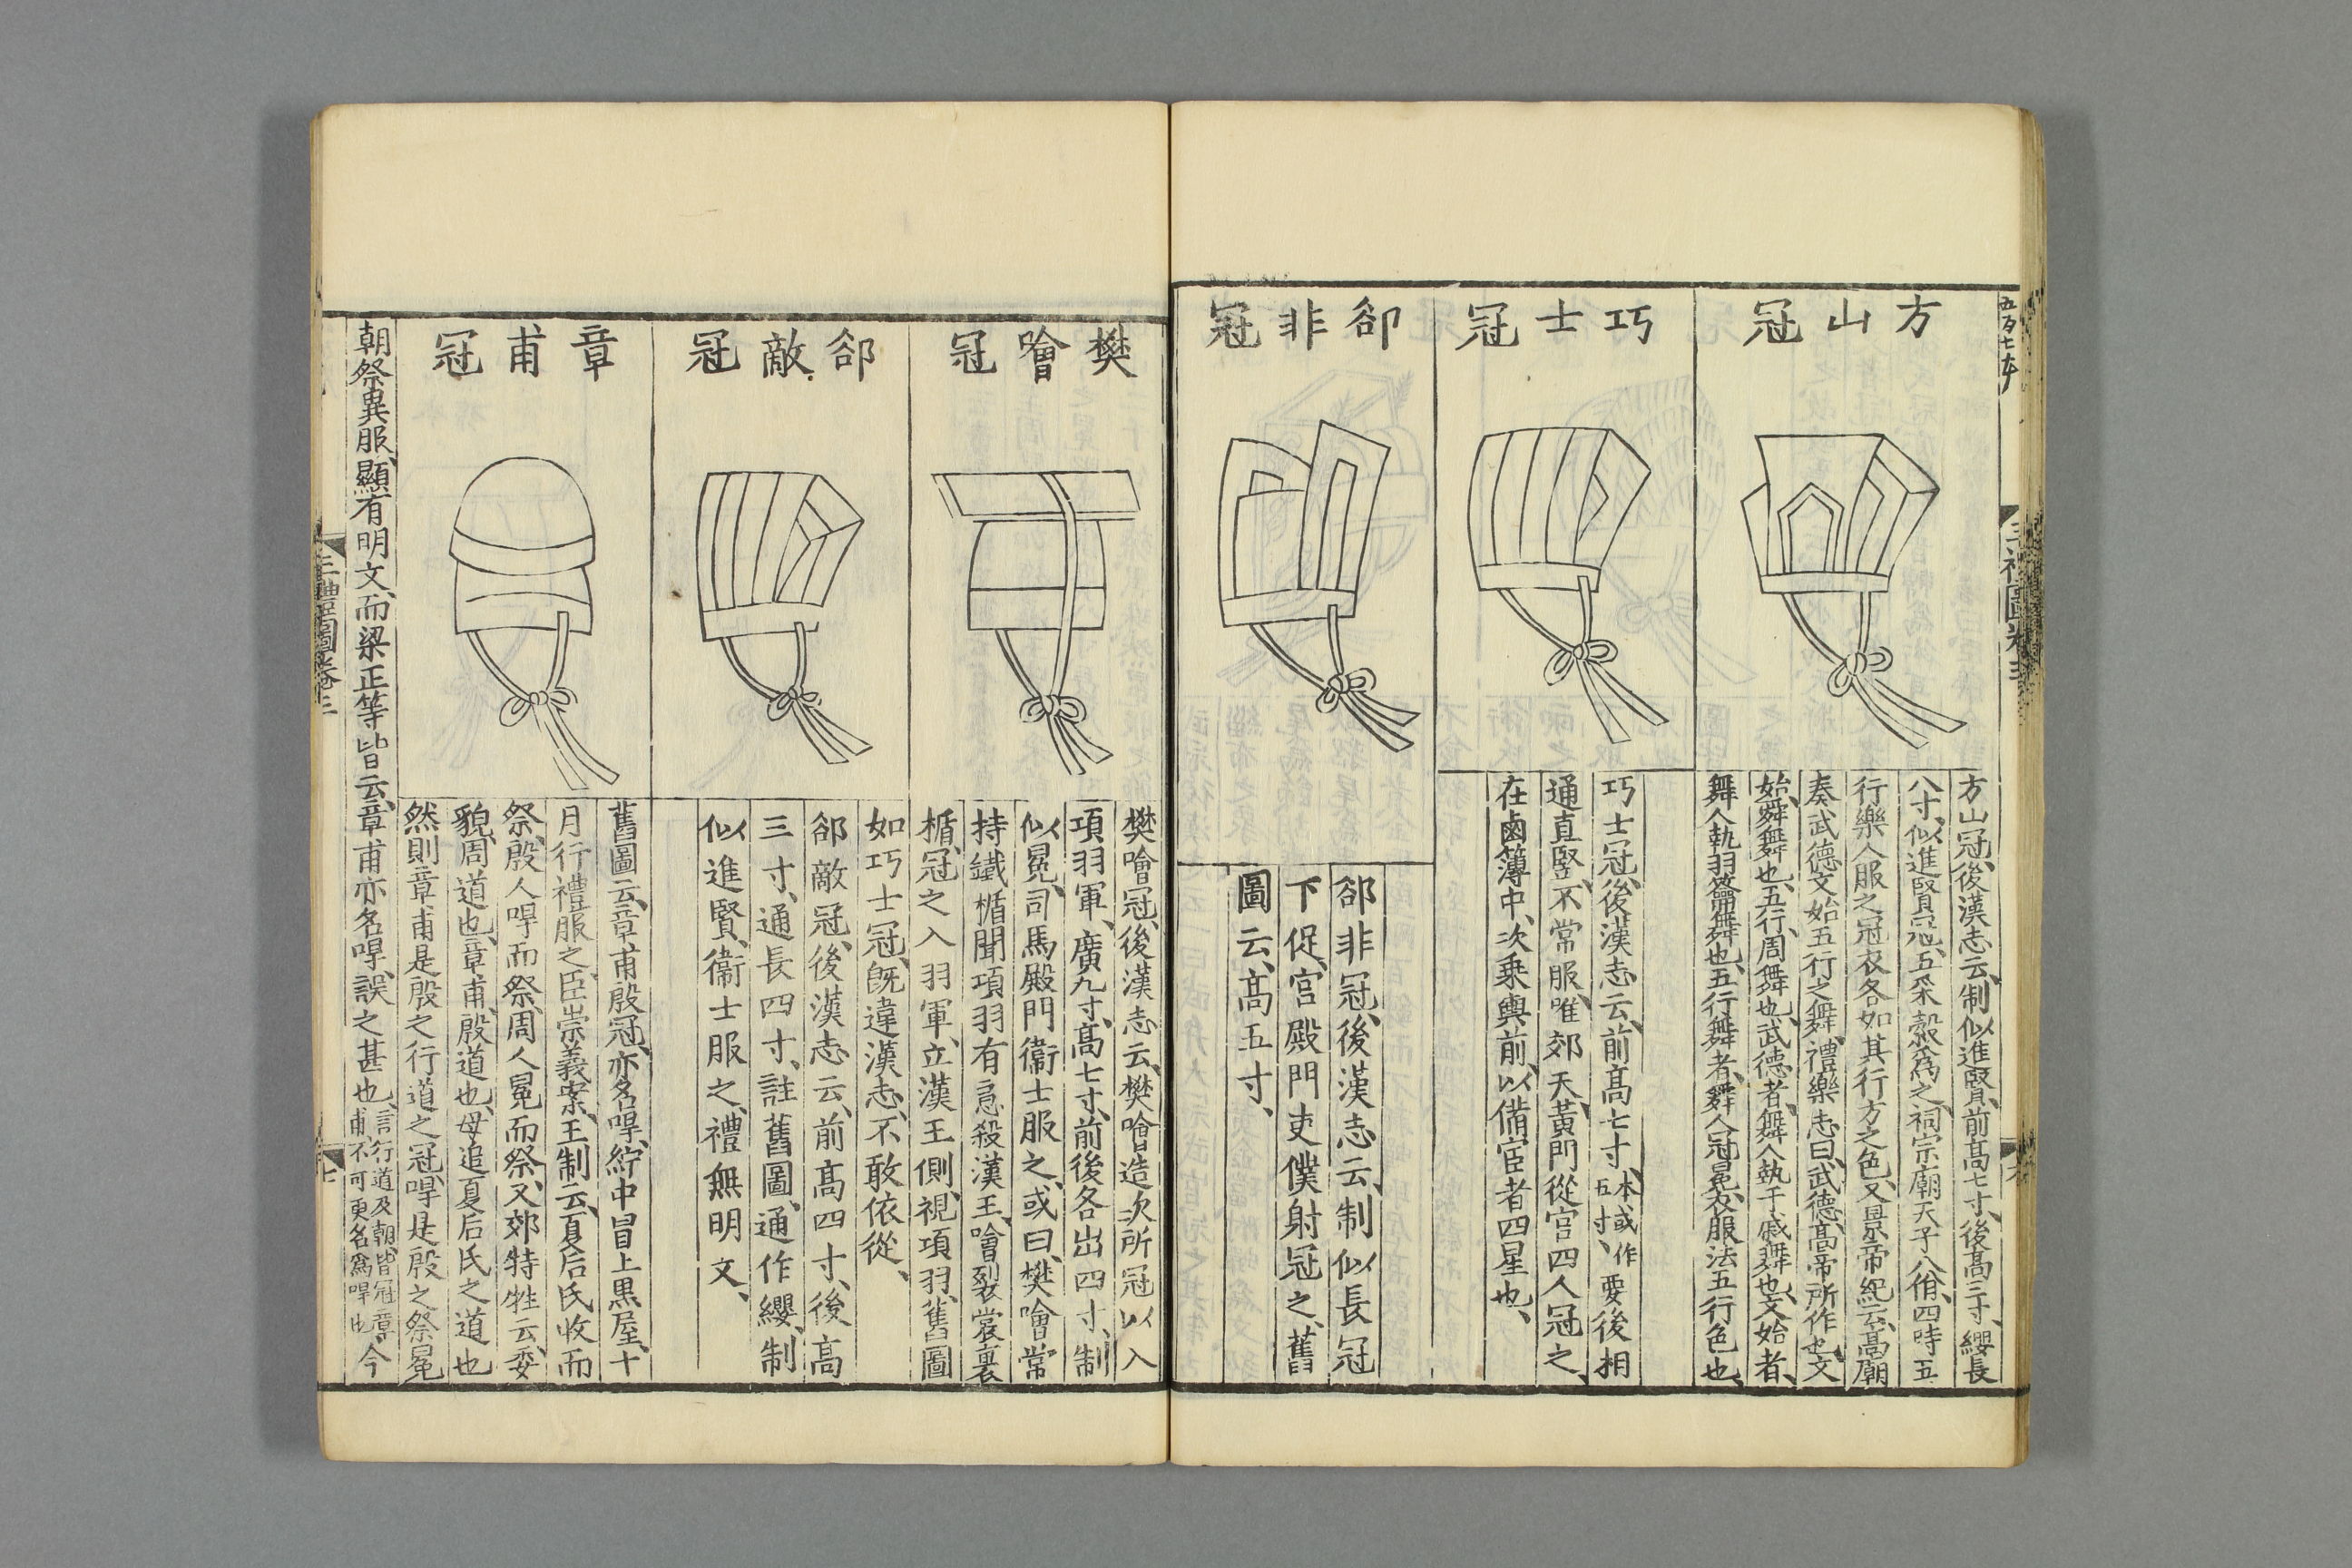 方山冠
方山冠、後漢志云、制似進賢、前高七寸、後高三寸、纓長
八寸、似進賢冠、五采縠為之、祠宗廟天子八佾、四時五
行樂人服之、冠衣各如其行方之色、又景帝紀云、高廟
奏武德文始五行之舞、禮樂志曰、武德、高帝所作也、文
始、舜舞也、五行、周舞也、武德者、舞人執干戚舞也、文始者、
舞人執羽籥舞也、五行舞者、舞人冠冕衣服法五行色也、
巧士冠
巧士冠、後漢志云、前高七寸、本或作五寸、要後相
通直竪、不常服、唯郊天、黃門從官四人冠之、
在鹵簿中、次乗輿前、以備宦者四星也、
郤非冠
郤非冠、後漢志云、制似長冠
下促、宮殿門吏僕射冠之、舊
圖云、高五寸、
樊噲冠
樊噲冠、後漢志云、樊噲造次所冠以入
項羽軍、廣九寸、高七寸、前後各出四寸、制
似冕、司馬殿門衞士服之、或曰、樊噲常
持鐵楯聞項羽有急殺漢王、噲裂裳裹
楯、冠之入羽軍、立漢王側、視項羽、舊圖
如巧士冠、旣違漢志、不敢依從、
郤敵冠
郤敵冠、後漢志云、前高四寸、後高
三寸、通長四寸、註舊圖、通作纓、制
似進賢、衞士服之、禮無明文、
章甫冠
舊圖云、章甫殷冠、亦名冔、紵中冒上黑屋、十
月行禮服之、臣崇義案、王制云、夏后氏收而
祭、殷人冔而祭、周人冕而祭、又郊特牲云、委
貌、周道也、章甫、殷道也、毋追夏后氏之道也
然則章甫是殷之行道之冠、冔是殷之祭冕
朝祭異服、顯有明文、而梁正等皆云、章甫亦名冔、誤之甚也、言行道及朝、皆冠章甫、不可更名為冔也、今
三禮圖卷三
七